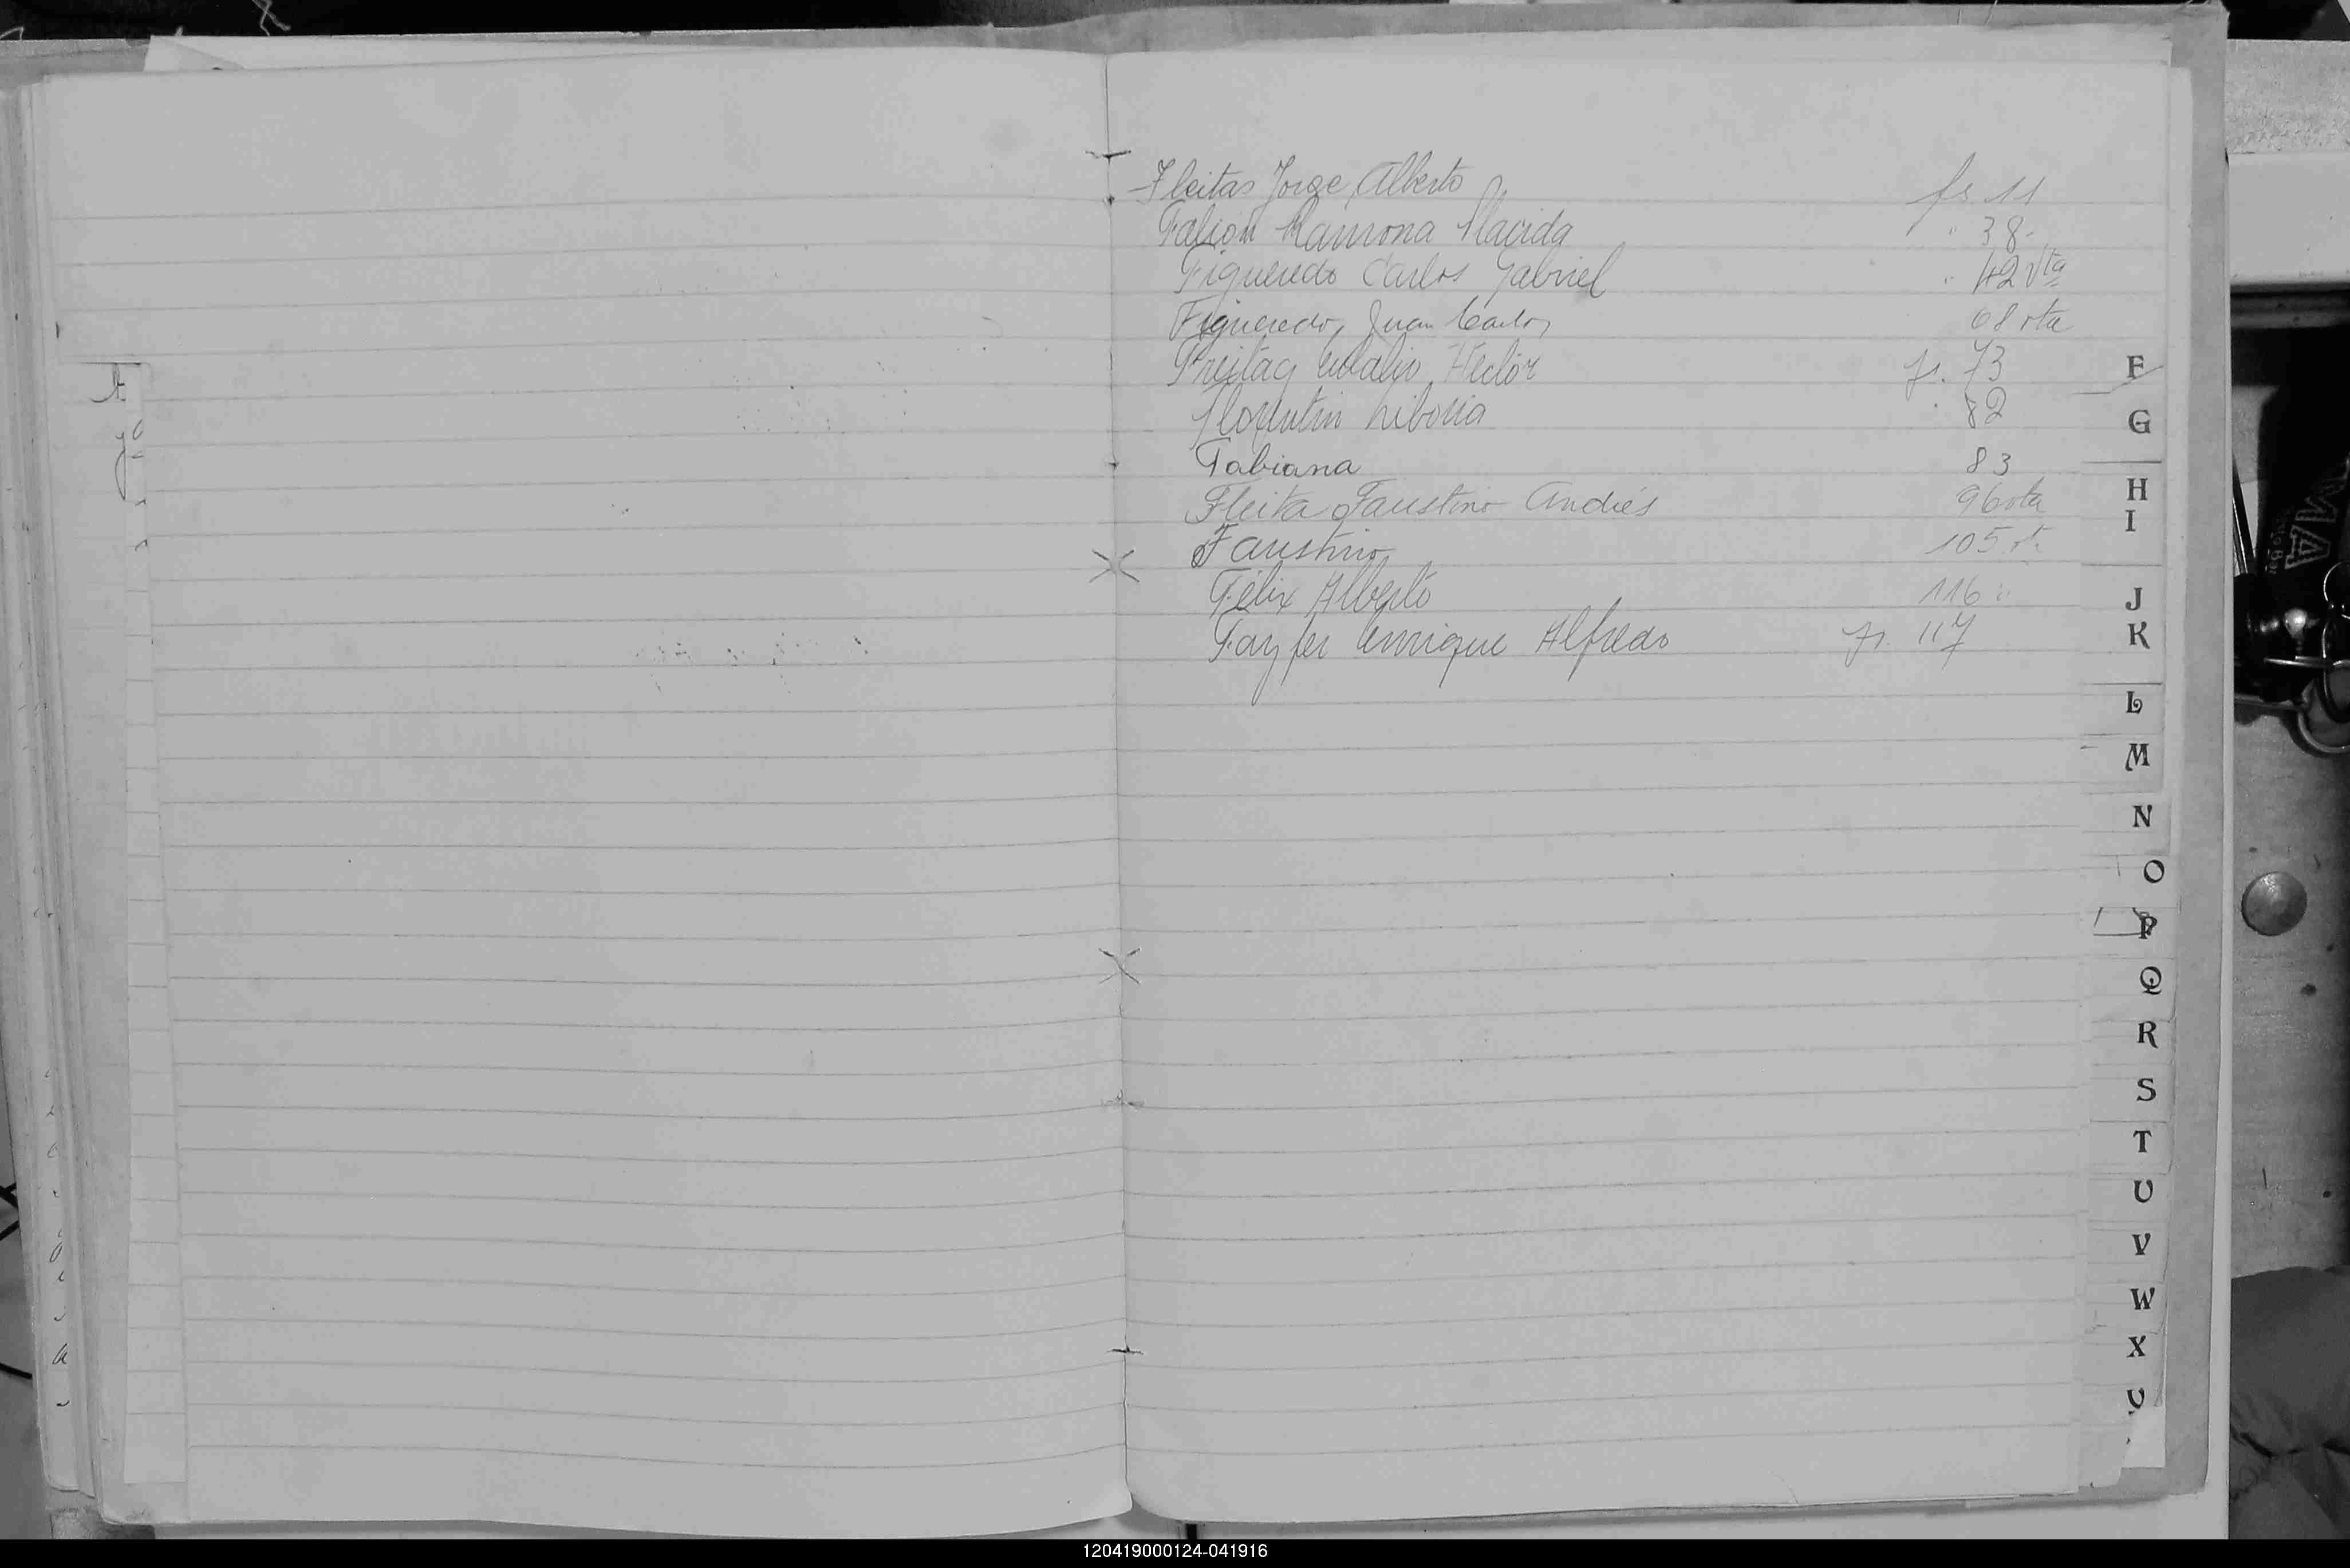 Fleitas Jorge Alberto fs 11
Falión Ramona Placida " 38-
Figueredo Carlos Gabriel " 42 vta
Figueredo, Juan Carlos 68 vta
Freitag Eulalio Hector fs. 73
Florentin Liboria " 82
Fabiana 83
Fleita Faustino Andrés 96 vta
Faustino 105 vt.
Félix Alberto 116 "
Fayfer Enrique Alfredo fs. 117
F
G
H
I
J
K
L
M
N
O
P
Q
R
S
T
U
V
W
X
120419000124-041916